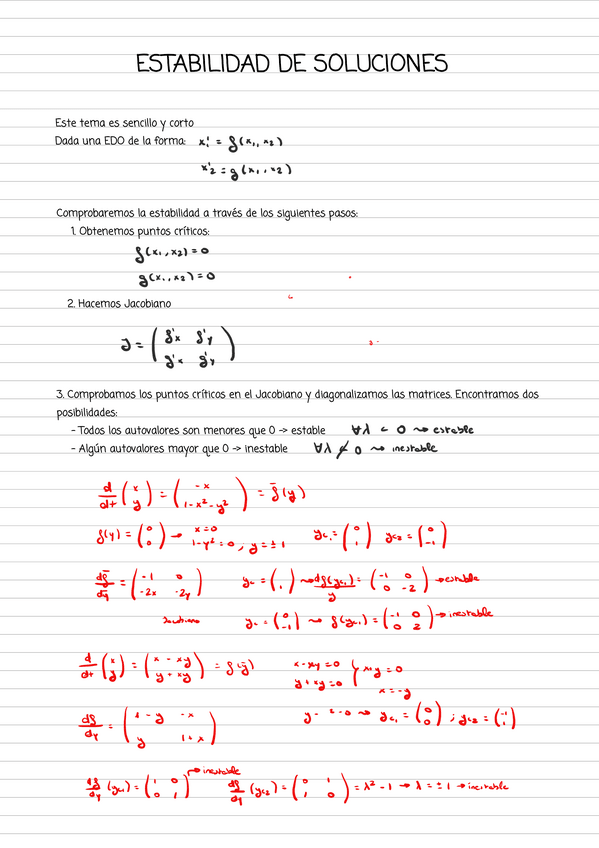 ESTABILIDAD DE SOLUCIONES
Este tema es sencillo y corto
Dada una EDO de la forma: x₁' = f(x₁, x₂)
x'₂ = g(x₁, x₂)
Comprobaremos la estabilidad a través de los siguientes pasos:
1. Obtenemos puntos críticos:
f(x₁, x₂) = 0
g(x₁, x₂) = 0
2. Hacemos Jacobiano
J = ( f'x f'y
g'x g'y )
3. Comprobamos los puntos críticos en el Jacobiano y diagonalizamos las matrices. Encontramos dos
posibilidades:
- Todos los autovalores son menores que 0 -> estable ∀λ < 0 ⇝ estable
- Algún autovalores mayor que 0 -> inestable ∀λ ≮ 0 ⇝ inestable
d/dt (x y) = (-x 1-x²-y²) = f̄(y)
f(y) = (0 0) → x=0 1-y²=0, y=±1 yc₁ = (0 1) yc₂ = (0 -1)
df̄/dȳ = (-1 0 -2x -2y) yc = ( 1) ⇝ df(yc₁)/y = (-1 0 0 -2) → estable
Jacobiano yc = (0 -1) ⇝ f(yc₁) = (-1 0 0 2) → inestable
d/dt (x y) = (x - xy y + xy) = f(ȳ) x-xy=0 y+xy=0 } x+y=0
x=-y
df/dy = (1-y -x y 1+x) yc₁ = (0 0) ; yc₂ = (-1 1)
df/dy (yc₁) = (1 0 0 1) → inestable df/dy (yc₂) = (0 1 1 0) = λ² - 1 → λ = ±1 → inestable